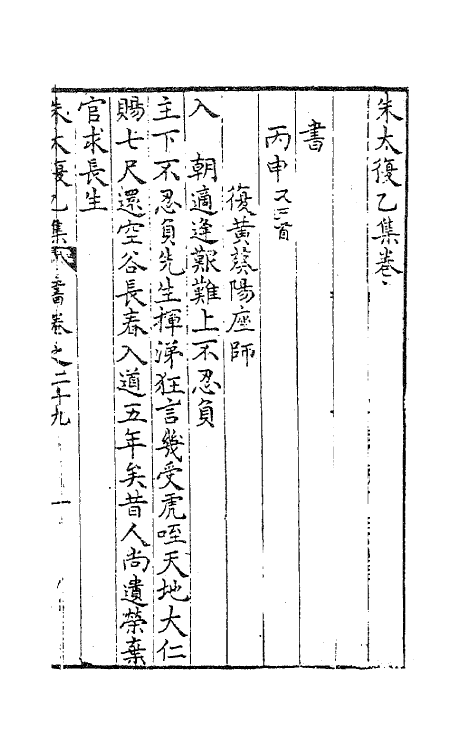 朱太復乙集卷
書
丙申
復黃葵陽座師
入　朝適逢艱難上不忍負
主下不忍負先生揮涕狂言幾受虎咥天地大仁
賜七尺還空谷長春入道五年矣昔人尚遺榮棄
官求長生
朱太復乙集 書卷之二十九 一